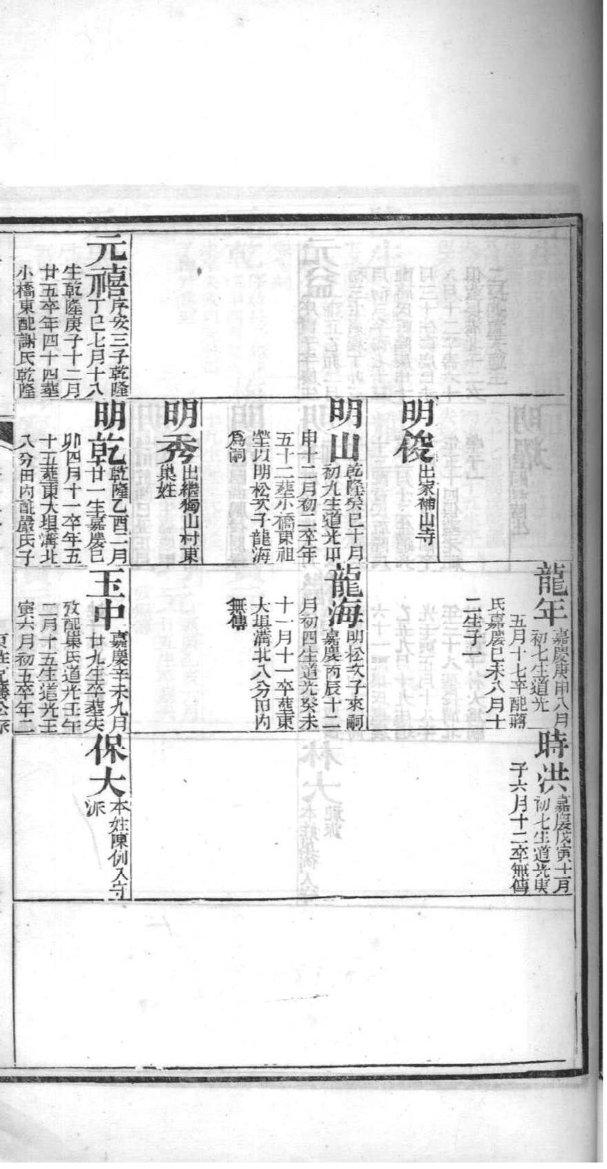 元禧
序安三子乾隆
丁巳七月十八
生乾隆庚子十二月
廿五卒年四十四葬
小橋東配謝氏乾隆
明俊
出家補山寺
明山
乾隆癸巳十月
初九生道光甲
申十二月初二卒年
五十二葬小橋東祖
塋以明松次子龍海
為嗣
明秀
出繼獨山村東
吳姓
明乾
乾隆乙酉二月
廿一生嘉慶己
卯四月十一卒年五
十五葬東大垻溝北
八分田內配嚴氏子
龍年
嘉慶庚申八月
初七生道光
五月十七卒配蔣
氏嘉慶己未八月十
二生子一
龍海
明松次子來嗣
嘉慶丙辰十二
月初四生道光癸未
十一月十一卒葬東
大垻溝北八分田內
無傳
玉中
嘉慶辛未九月
廿九生卒葬失
攷配巢氏道光壬午
二月十五生道光壬
寅六月初五卒年二
時洪
嘉慶戊寅十一月
初七生道光庚
子六月十二卒無傳
保大
本姓陳例入寺
派